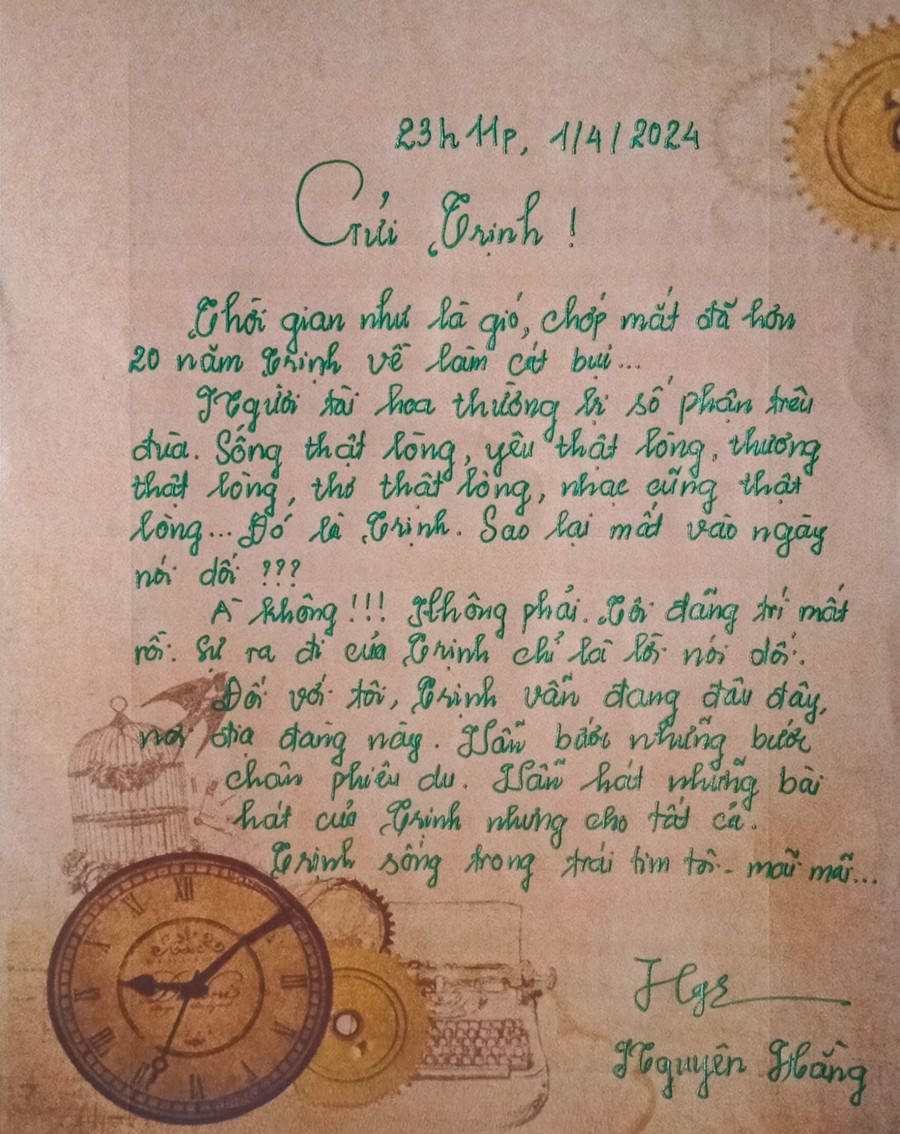 23h 11p, 1/4/2024
Gửi Trịnh!
Thời gian như là gió, chớp mắt đã hơn
20 năm Trịnh về làm cát bụi...
Người tài hoa thường bị số phận trêu
đùa. Sống thật lòng, yêu thật lòng, thương
thật lòng, thơ thật lòng, nhạc cũng thật
lòng... Đó là Trịnh. Sao lại mất vào ngày
nói dối ???
À không!!! Không phải. Tôi đãng trí mất
rồi. Sự ra đi của Trịnh chỉ là lời nói dối.
Đối với tôi, Trịnh vẫn đang đâu đây,
nơi địa đàng này. Vẫn bước những bước
chân phiêu du. Vẫn hát những bài
hát của Trịnh nhưng cho tất cả.
Trịnh sống trong trái tim tôi - mãi mãi...
Nguyên Hằng